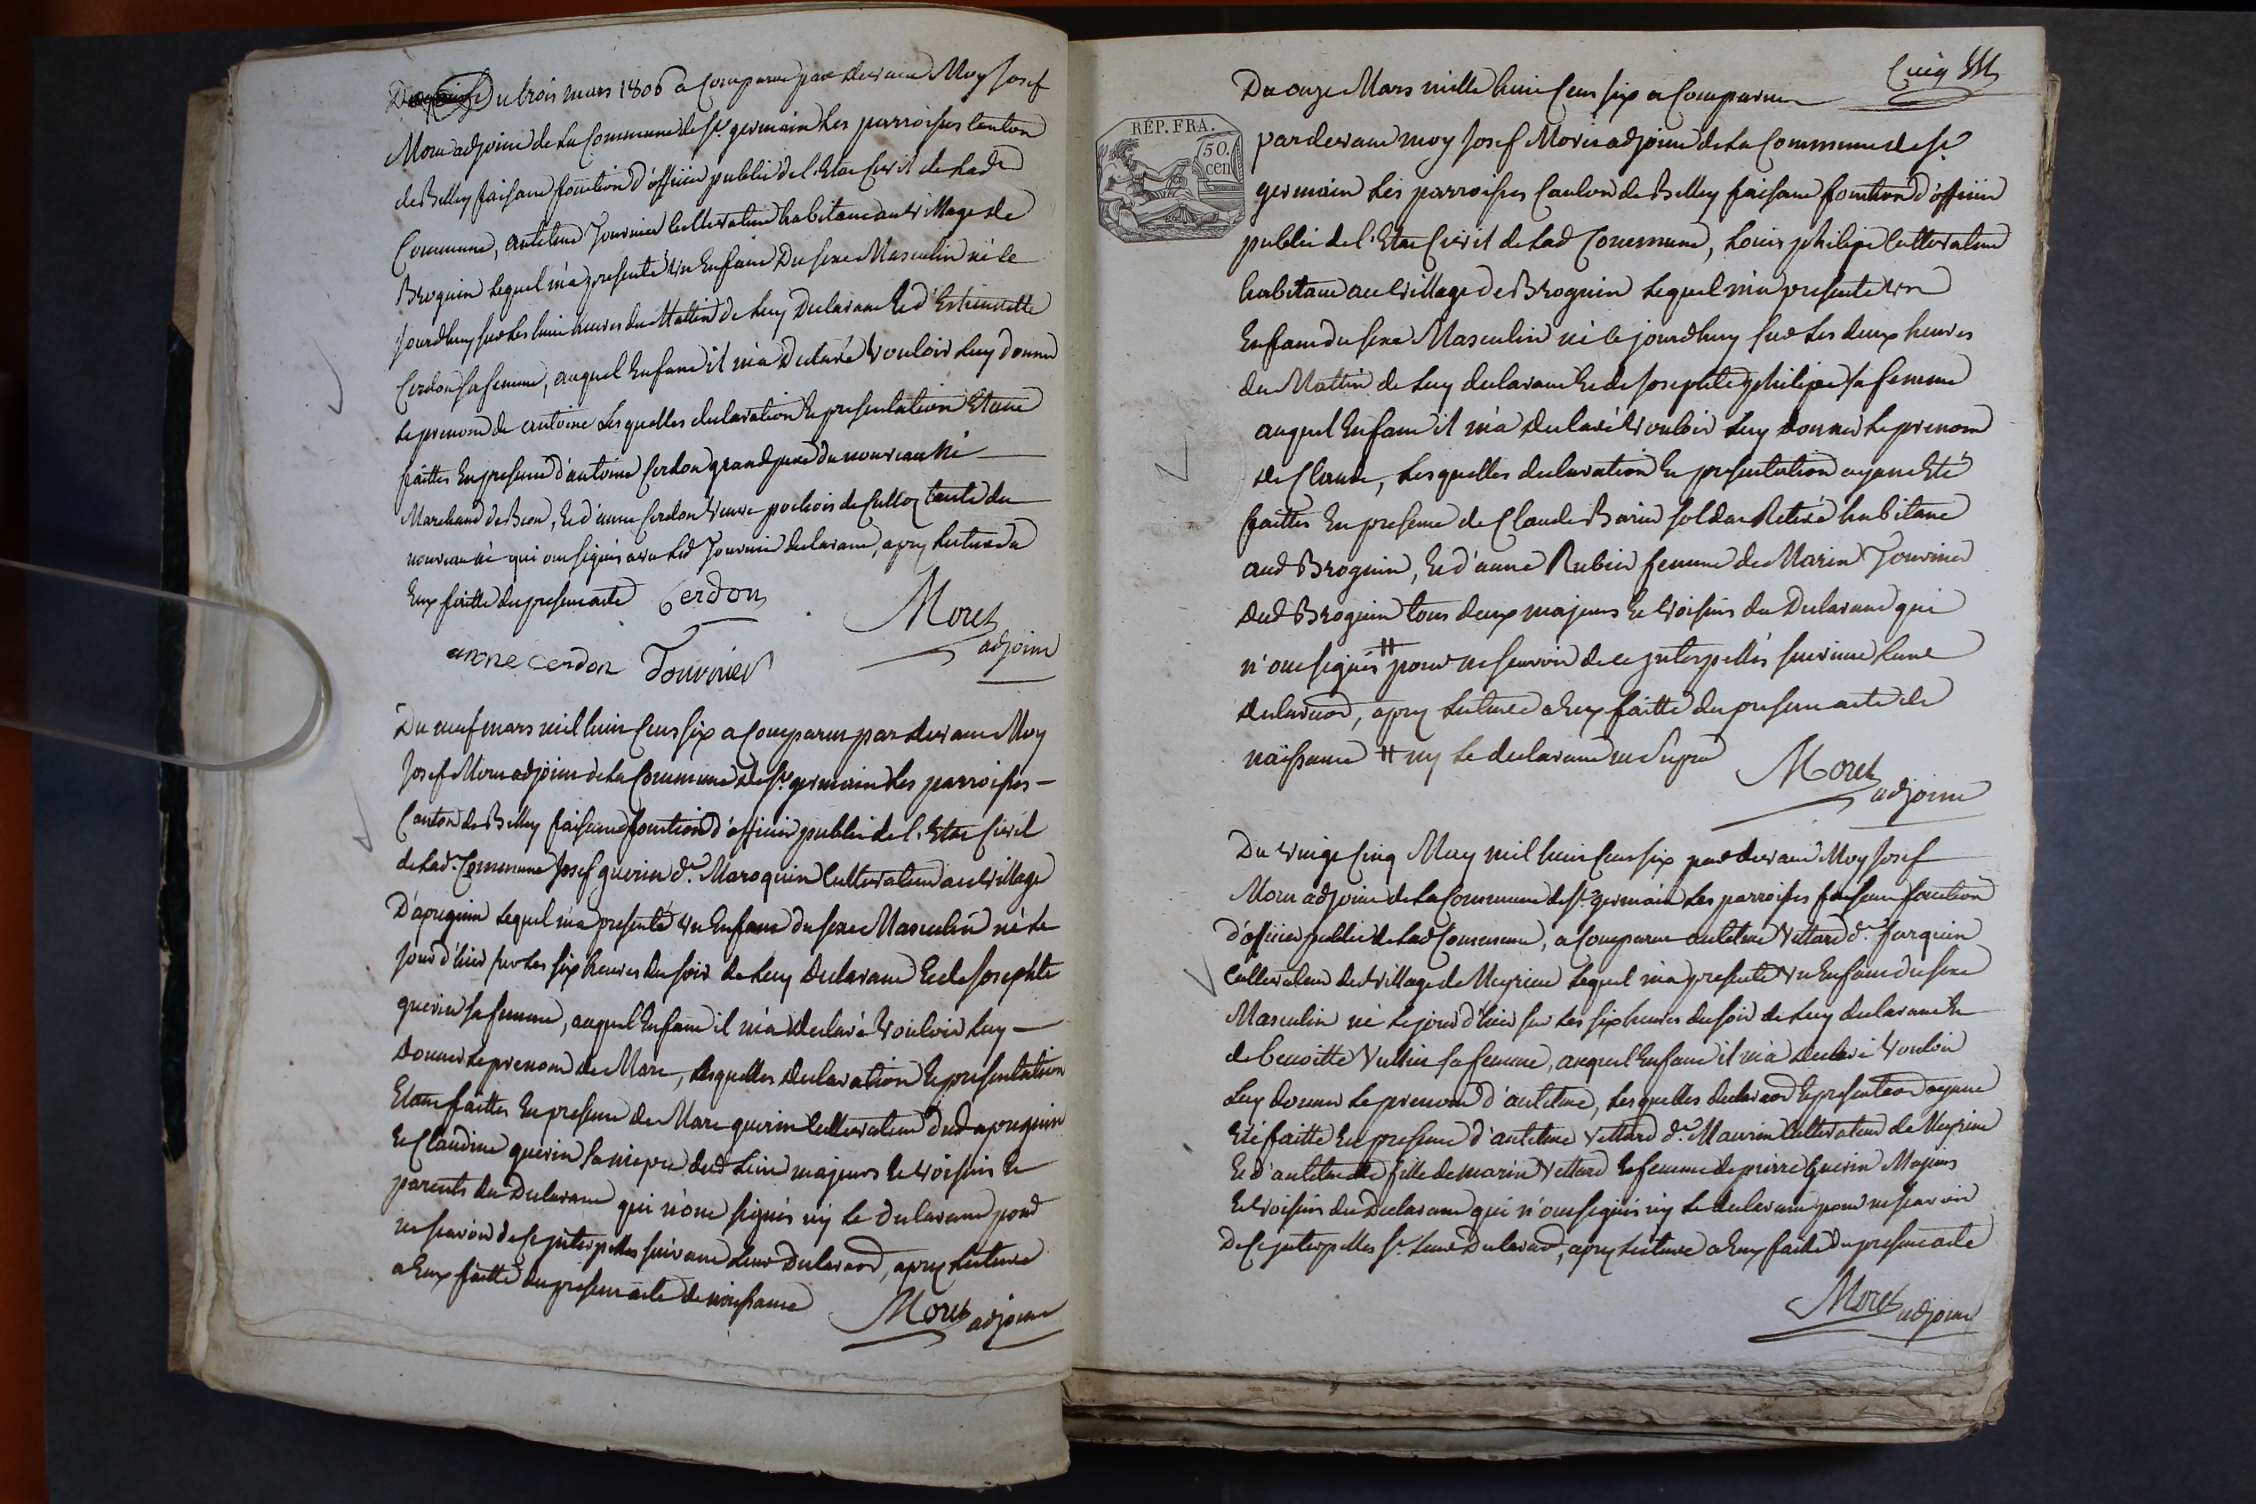 Du trois mars 1806 a Comparu par devant Moy Josef
Moret adjoint de la Commune de St germain Les parroisses Canton
de Belley faisant fonction d'officier public de l'Etat Civil de Lade
Commune, antelme Tournier Cultivateur habitant au village de
Brognin Lequel m'a presenté un Enfant Du sexe Masculin né ce
jourdhuy sur Les huit heures du Mattin de Luy Declarant Et d'Estiennette
Cerdon sa femme, auquel Enfant il m'a Declaré Vouloir Luy donner
Le prenom de antoine Lesquelles declaration Et presentation Etant
faittes En presence d'antoine Cerdon grand pere du nouveau né
Marchand de Beon, Et d'anne Cerdon Veuve de Culloz tante du
nouveau né qui ont signés avec Led Tournier declarant, apres Lecture a
Eux faitte du present acte Cerdon
Moret
adjoint
anne cerdon Tournier
Du neuf mars mil huit Cent six a Comparu par devant Moy
Josef Moret adjoint de la Commune de St germain Les parroisses
Canton de Belley faisant fonction d'officier public de l'Etat Civil
de Lade Commune Josef guerin dt Maroquin Cultivateur au village
D'apregnin Lequel m'a presenté un Enfant du sexe Masculin né Le
Jour d'hier sur Les six heures du soir de Luy Declarant Et de Josephte
guerin sa femme, auquel Enfant il m'a declaré Vouloir Luy
donner Le prenom de Marc, Lesquelles declaration Et presentation
Etant faittes En presence de Marc guerin Cultivateur dud apregnin
Et Claudine guerin sa niepce dud Lieu majeurs Et voisins Et
parents du Declarant qui n'ont signés ny Le declarant pour
ne scavoir de Ce interpellés suivant Leur Declaraon, apres Lecture
a Eux faitte du present acte de naissance
Moret adjoint
Cinq
Du onze Mars mille huit Cent six a Comparu
RÉP. FRA.
50.
cen
pardevant moy Josef Moret adjoint de La Commune de St
germain Les parroisses Canton de Belley faisant fonction d'officier
public de l'Etat Civil de Lad Commune, Louis philipe Cultivateur
habitant au village de Brognin Lequel m'a presenté un
Enfant du sexe Masculin né ce jourdhuy sur Les deux heures
du Mattin de Luy declarant Et de Josephte philipe sa femme
auquel Enfant il m'a declaré Vouloir Luy donner Le prenom
de Claude, Lesquelles declaration Et presentation ayant Eté
faittes En presence de Claude Barin soldat Retiré habitant
aud Brognin, Et d'anne Rubin femme de Marin Tournier
dud Brognin tous deux majeurs Et voisins du Declarant qui
n'ont signés # pour ne scavoir de ce interpellés suivant Leur
declaraon, apres Lecture a Eux faitte du present acte de
naissance # ny Le declarant ut supra
Moret
adjoint
Du vingt Cinq May mil huit Cent six par devant Moy Josef
Moret adjoint de La Commune de St germain Les parroisses faisant fonction
d'officier public de Lad Commune, a Comparu antelme Vettard dt
Cultivateur du village de Meyrieu Lequel m'a presenté un Enfant du sexe
Masculin né Le jour d'hier sur Les six heures du soir de Luy declarant Et
de benoitte Vullin sa femme, auquel Enfant il m'a declaré Vouloir
Luy donner Le prenom d'antelme, Lesquelles declaraon Et presentaon ayant
Eté faitte En presence d'antelme Vettard dt Maurin Cultivateur de Meyrieu
Et d'antelmette fille de marin Vettard Et femme de pierre Guerin Majeurs
Et voisins du Declarant qui n'ont signés ny Le declarant pour ne scavoir
De Ce interpellés St Leur Declaraon, apres Lecture a Eux faitte du present acte
Moret adjoint